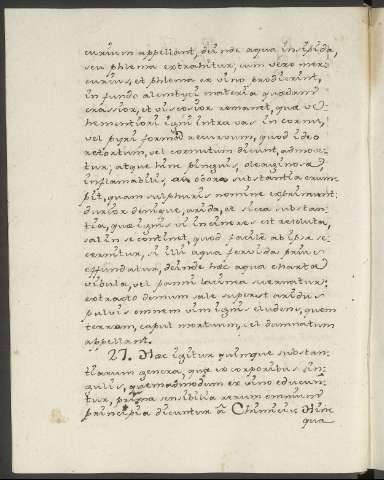 curium appellant, deinde aqua insipida,
seu phlema extrahitur; cum vero mer-
curius, et phlema ex vino prodierint,
in fundo alembyci materia quædam
crassior, et viscosior remanet, quæ ve-
hementiori igni intra vas in cornu,
vel pyri formam recurvum, quod ideo
retortum, vel cornutum dicunt, admove-
tur; atque hinc pinguis oleaginosa
inflammabilis ac odora substantia erum-
pit, quam sulphuris nomine exprimunt:
durior denique, arida, et sicca substan-
tia, quæ ignis vi in cineres est resoluta,
salin se continet, quod facile ab ipsa se-
cernitur, si illi aqua fervida prius
effundatur, deinde hæc aqua charta
bibula, vel panni lacinea secernatur:
extracto demum sale superest aridus
pulvis omnem vim ignis eludens, quem
terram, caput mortuum, vel damnatum
appellant.
27. Hæc igitur quinque substan-
tiarum genera, quæ ex corporibus sin-
gulis, quemadmodum ex vino educun-
tur, prima sensibilia rerum omnium
principia dicuntur à Chimicis. Hinc
qua